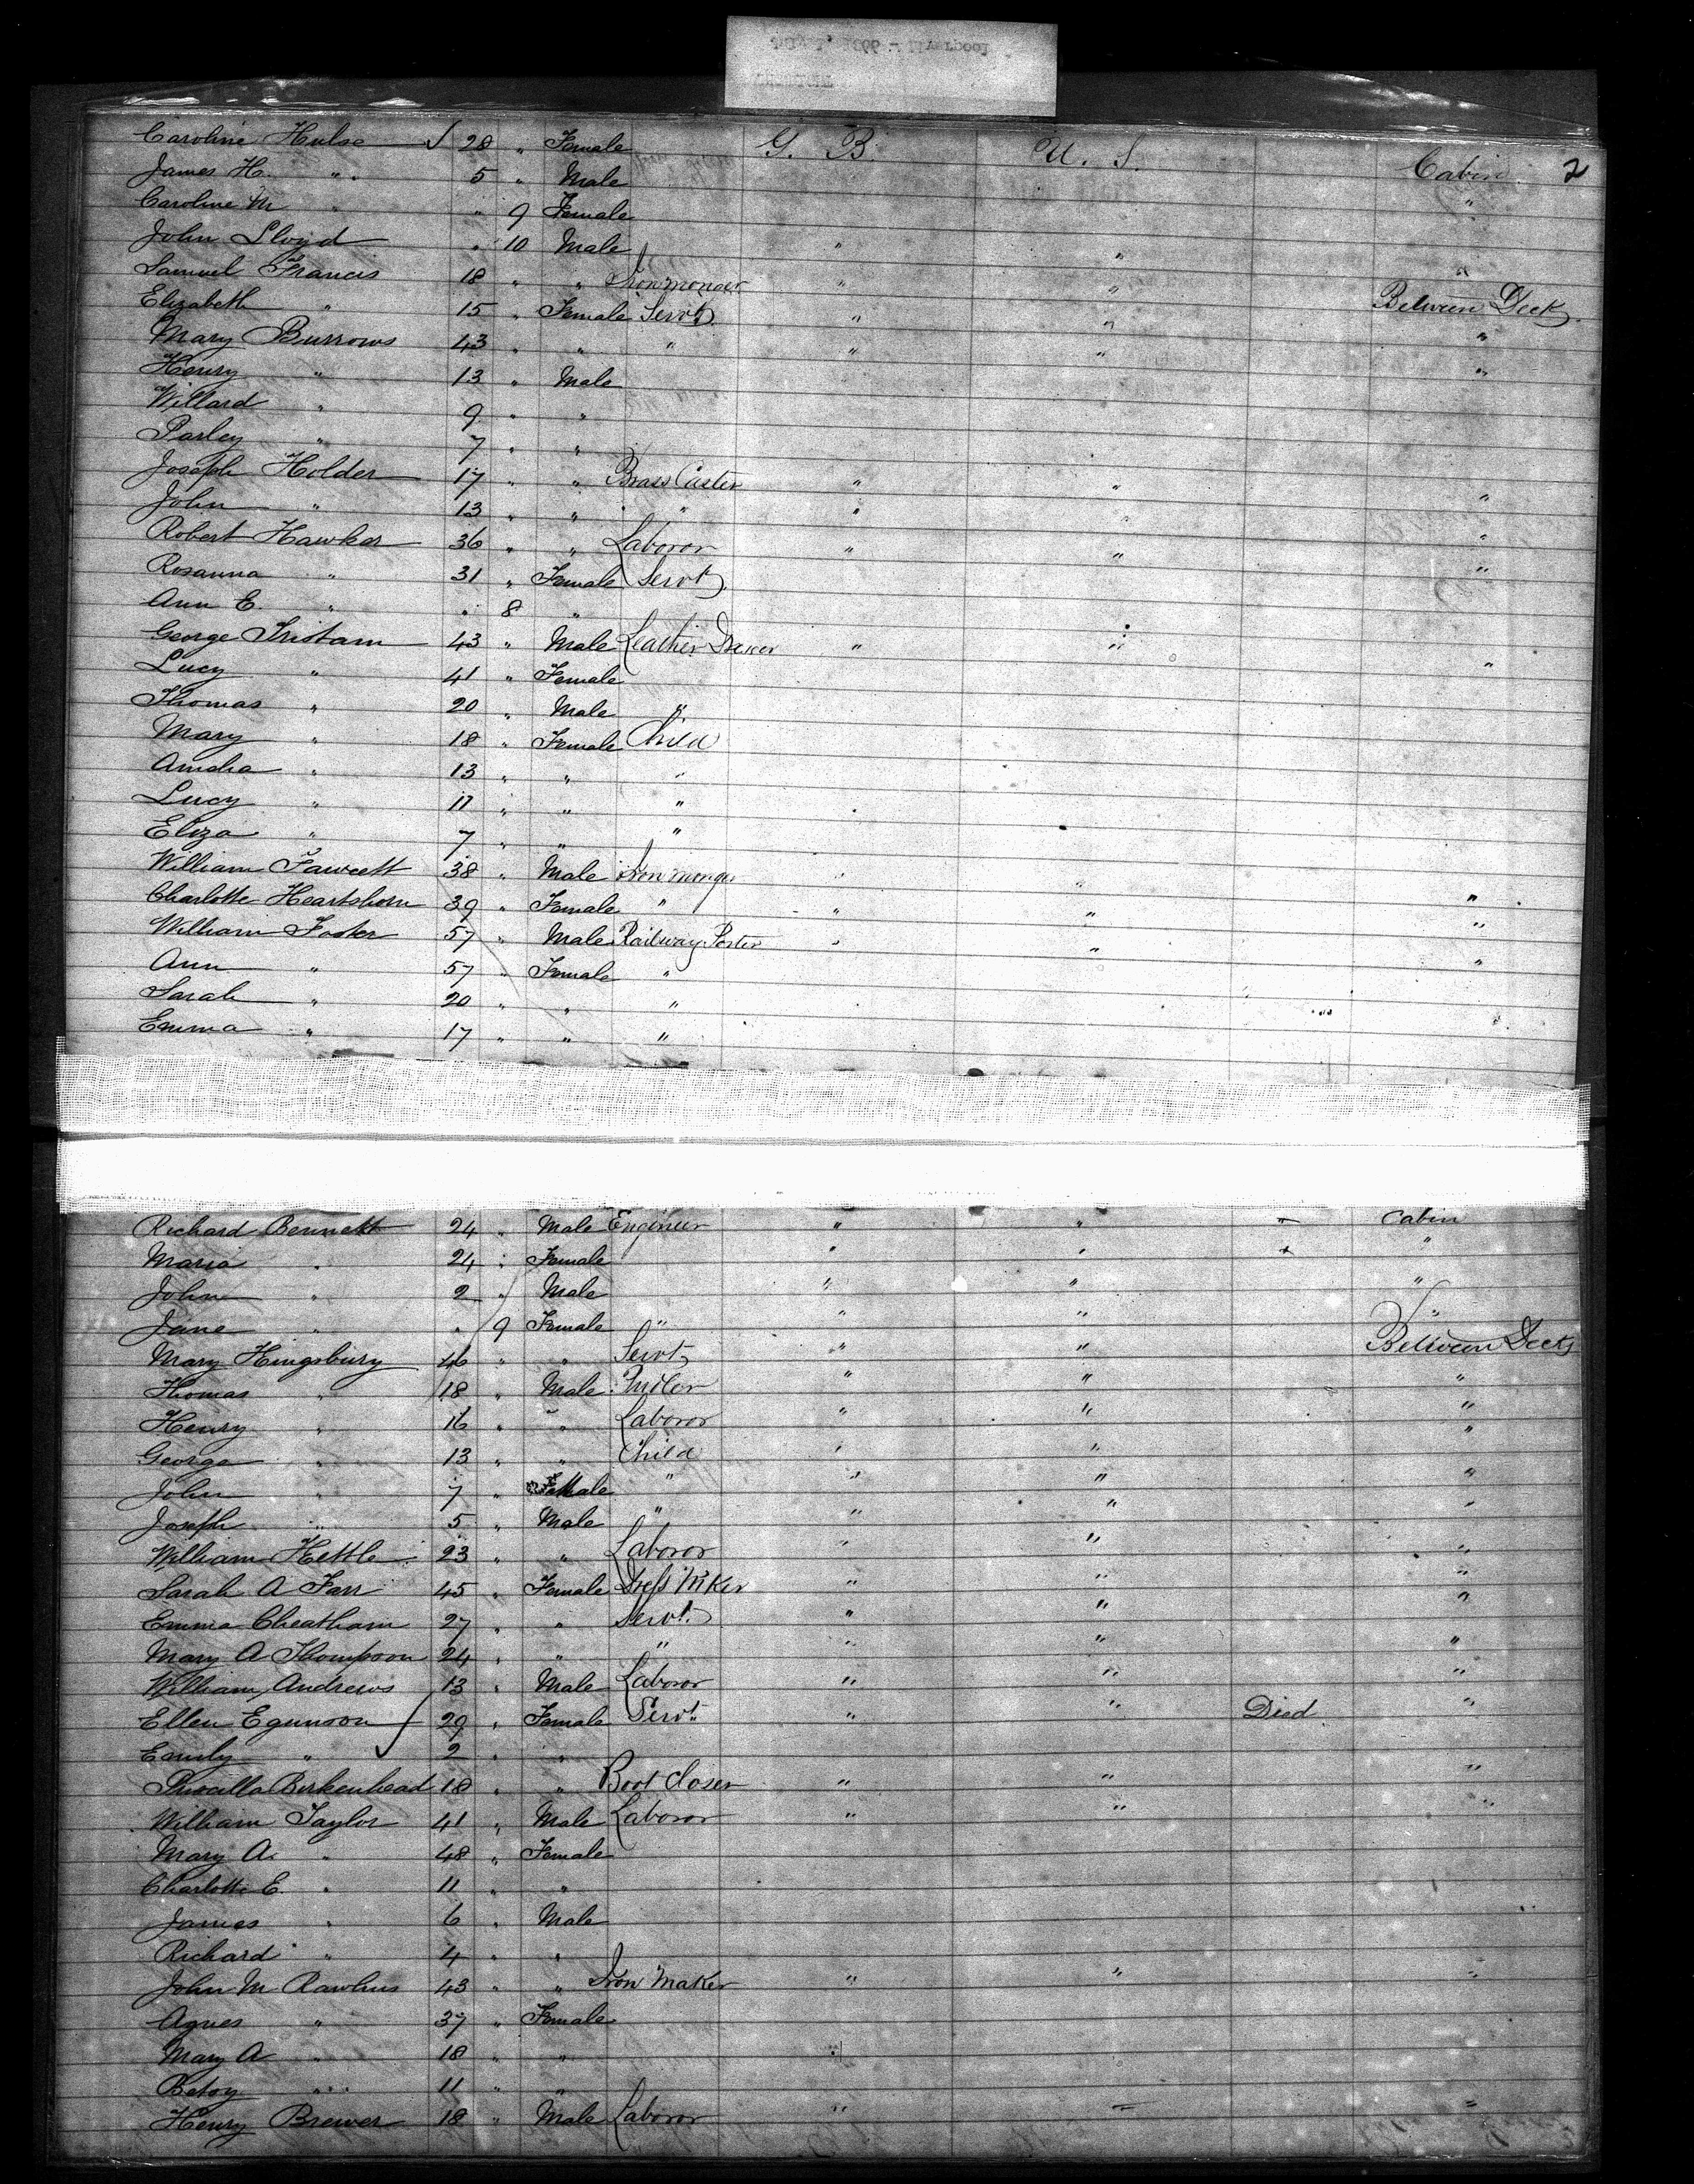 Caroline Hulse 28 " Female G. B. U. S. Cabin 2
James H. " 5 " Male "
Caroline M " " 9 Female
John Lloyd " 10 Male " " "
Samuel Francis 18 " " Ironmonger " " Between Decks
Elizabeth " 15 " Female Servt " " "
Mary Burrows 43 " " " " " "
Henry " 13 " Male
Willard " 9 " "
Parley " 7 " "
Joseph Holder 17 " " Brass Caster " " "
John " 13 " " " " " "
Robert Hawker 36 " " Laboror " " "
Rosanna " 31 " Female Servt
Ann E " " 8 "
George Tristam 43 " Male Leather " " "
Lucy " 41 " Female
Thomas " 20 " Male "
Mary " 18 " Female Child
Amelia " 13 " " "
Lucy " 11 " " "
Eliza " 7 " " "
William Fawcett 38 " Male Iron monger " " "
Charlotte Heartshorn 39 " Female " " " "
William Foster 57 " Male Railway Porter " " "
Ann " 57 " Female "
Sarah " 20 " " "
Emma " 17 " " "
Richard Bennett 24 " Male Engineer " " Cabin
Maria " 24 " Female " " "
John " 2 " Male " " "
Jane " " 9 Female " " " "
Mary Kingsbury 46 " " Servt " " Between Decks
Thomas " 18 " Male " " "
Henry " 16 " " Laboror " " "
George " 13 " " Child " " "
John " 7 " Male " " " "
Joseph " 5 " Male " " " "
William Kettle 23 " " Laboror " " "
Sarah A Farr 45 " Female Dress Mker " " "
Emma Cheatham 27 " " Servt " " "
Mary A Thompson 24 " " " " " "
William Andrews 13 " Male Laboror " " "
Ellen Egunson 29 " Female Servt " " Died "
Emily " 2 " "
Priscilla Berkenhead 18 " " Boot Closer " " "
William Taylor 41 " Male Laboror " " "
Mary A. " 48 " Female
Charlotte E. " 11 " "
James " 6 " Male
Richard " 4 " "
John M Rawlins 43 " " Iron Maker " " "
Agnes " 37 " Female
Mary A " 18 " "
Betsy " 11 " "
Henry Brewer 18 " Male Laboror " " "